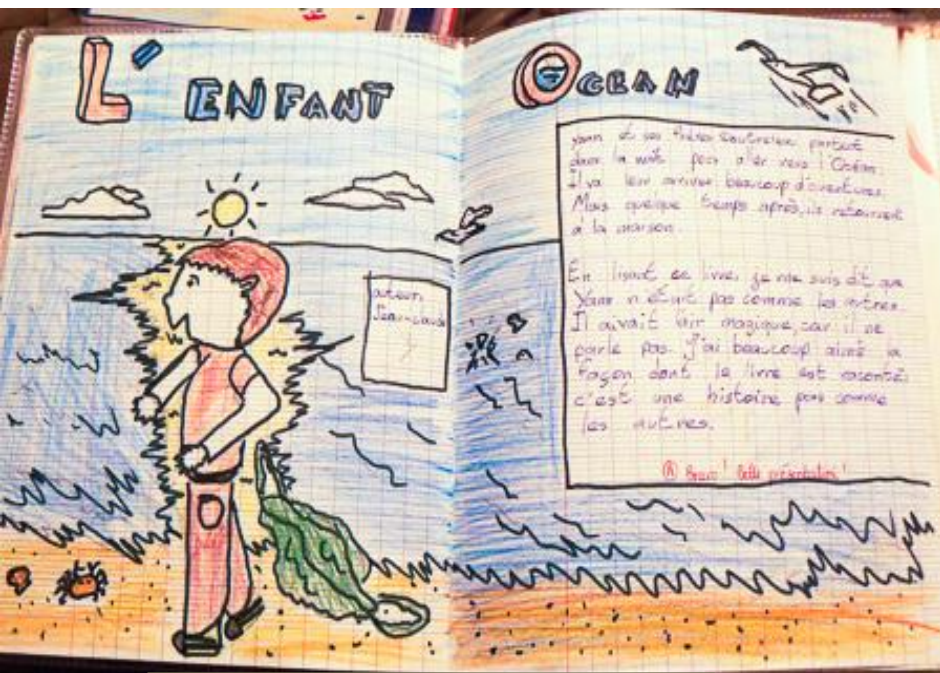 L'ENFANT
OCEAN
auteur
Jean-Claude
Yann et ses frères partent
dans la nuit pour aler vers l'Océan.
Il va leur arriver beaucoup d'aventures.
Mais quelque temps après, ils retournent
à la maison.
En lisant ce livre, je me suis dit que
Yann n'était pas comme les autres.
Il avait l'air magique, car il ne
parle pas. J'ai beaucoup aimé la
façon dont le livre est raconté,
c'est une histoire pas comme
les autres.
A Bravo! Belle présentation!